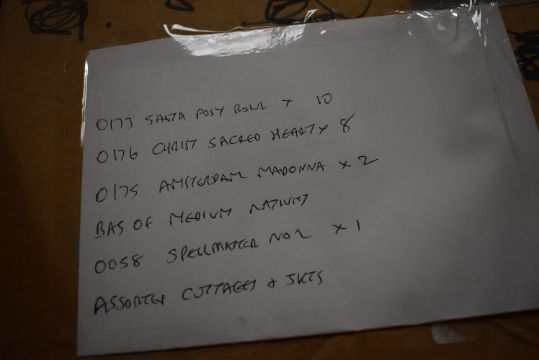 0173 SANTA POSY BOWL x 10
0176 CHRIST SACRED HEART x 8
0175 AMSTERDAM MADONNA x 2
BAG OF MEDIUM NATIVITY
0058 SPELLMASTER NO 2 x 1
ASSORTED COTTAGES &